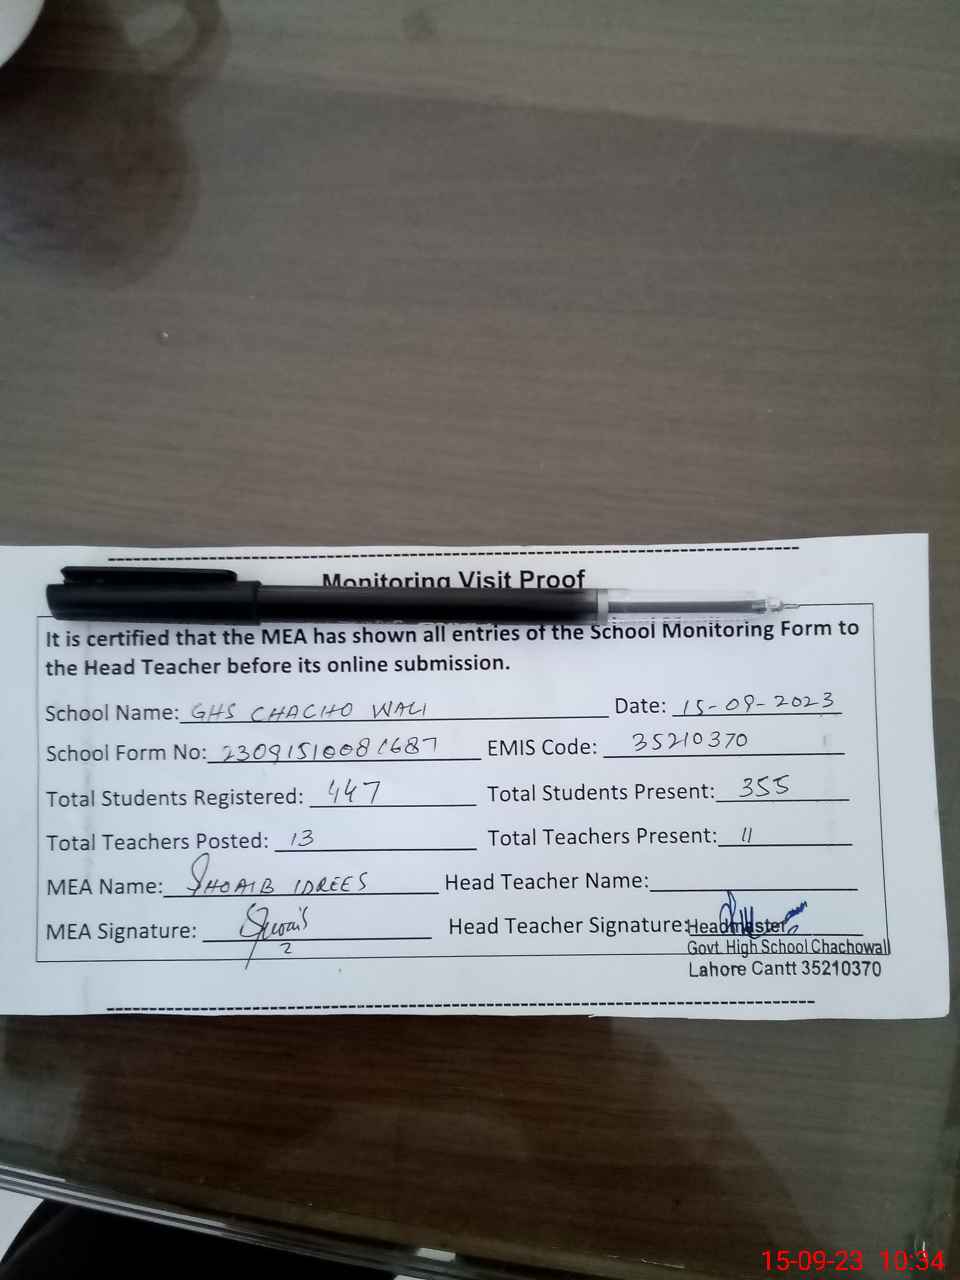 Monitoring Visit Proof
It is certified that the MEA has shown all entries of the School Monitoring Form to
the Head Teacher before its online submission.
School Name: GHS CHACHO WALI Date: 15-09-2023
School Form No: 23091510081687 EMIS Code: 35210370
Total Students Registered: 447 Total Students Present: 355
Total Teachers Posted: 13 Total Teachers Present: 11
MEA Name: SHOAIB IDREES Head Teacher Name:
MEA Signature: Head Teacher Signature: Headmaster
Govt. High School Chachowali
Lahore Cantt 35210370
15-09-23 10:34